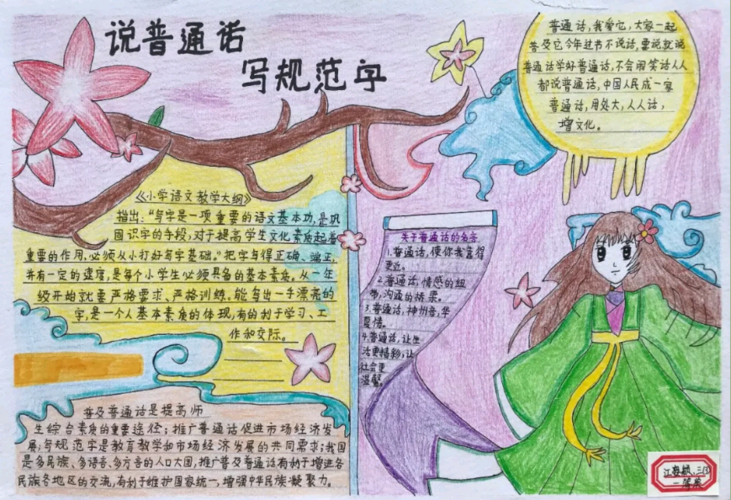 说普通话
写规范字
普通话,我爱它,大家一起
普及它今年过节不说话,要说就说
普通话学好普通话,不会闹笑话人人
都说普通话,中国人民成一家
普通话,用处大,人人话,
增文化。
《小学语文教学大纲》
指出:“写字是一项重要的语文基本功,是巩
固识字的手段,对于提高学生文化素质起着
重要的作用,必须从小打好写字基础。”把字写得正确、端正,
并有一定的速度,是每个小学生必须具备的基本素质。从一年
级开始就要严格要求、严格训练。能写出一手漂亮的
字,是一个人基本素质的体现,有的利于学习、工
作和交际。
关于普通话的名言
1.普通话,使你我靠得
更近。
2.普通话,情感的纽
带,沟通的桥梁。
3.普通话,神州音,华
夏情。
4.普通话,让生
活更精彩,让
社会更
温馨。
普及普通话是提高师
生综合素质的重要途径;推广普通话促进市场经济发
展;写规范是教育教学和市场经济发展的共同需求;我国
是多民族、多语言、多方言的人口大国,推广普及普通话有利于增进各
民族各地区的交流,有利于维护国家统一,增强中华民族凝聚力。
一等奖